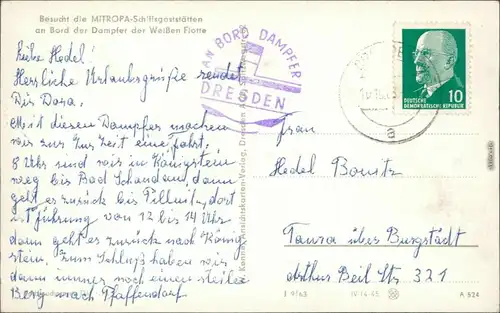 Besucht die MITROPA-Schiffsgaststätten
an Bord der Dampfer der Weißen Flotte
Liebe Hedel!
Herzliche Urlaubsgrüße sendet
Dir Dora.
Mit diesen Dampfer machen
wir zur Zur Zeit eine Fahrt.
8 Uhr sind wir in Königstein
weg bis Bad Schandau, dann
geht es zurück bis Pillnitz, dort
führung von 12 bis 14 Uhr
dann geht es zurück nach König
stein, zum Schluß haben wir
dann immer noch einen steilen
Berg nach Pfaffendorf
AN BORD DAMPFER
DRESDEN
DEUTSCHE
DEMOKRATISCHE REPUBLIK
10
a
Frau
Hedel Bonitz
Taura über Burgstädt
Arthur Beil Str. 321
J 9/63 IV-14-45 A 824